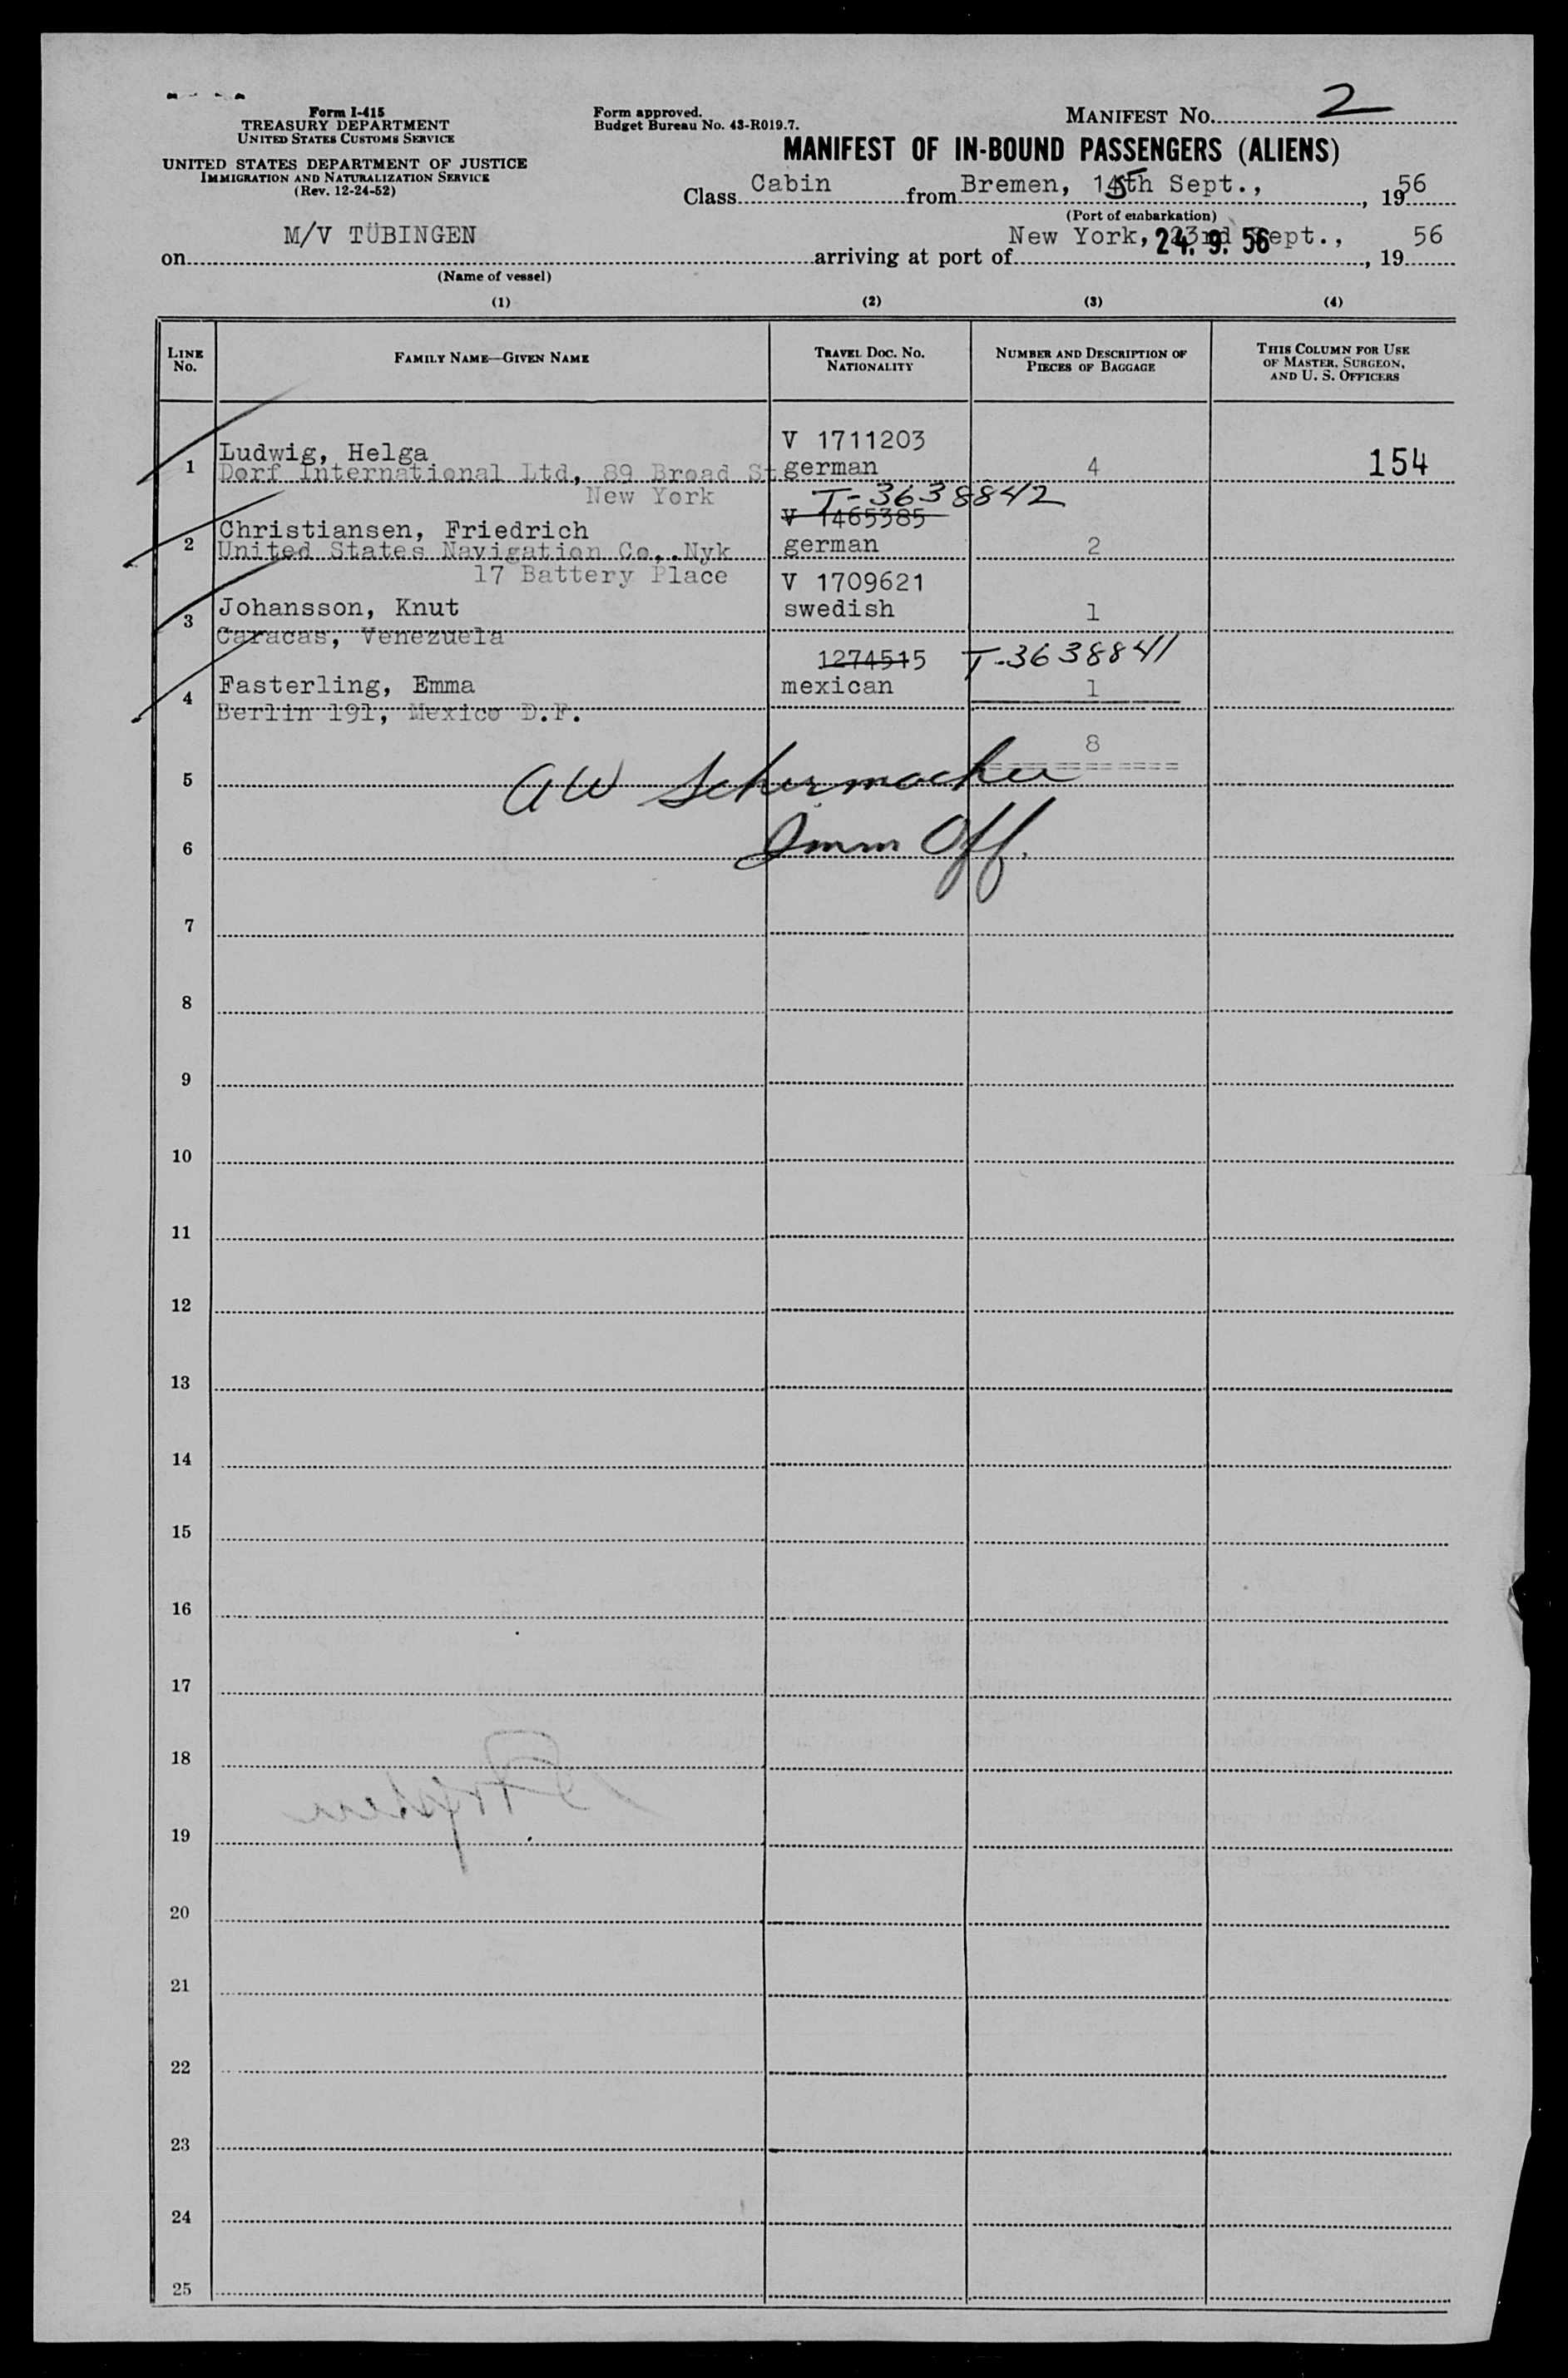 Form I-415
TREASURY DEPARTMENT
UNITED STATES CUSTOMS SERVICE
UNITED STATES DEPARTMENT OF JUSTICE
IMMIGRATION AND NATURALIZATION SERVICE
(Rev. 12-24-52)
Form approved.
Budget Bureau No. 43-R019.7.
MANIFEST NO. 2
MANIFEST OF IN-BOUND PASSENGERS (ALIENS)
Class Cabin from Bremen, 15th Sept., 1956
(Port of embarkation)
on M/V TÜBINGEN arriving at port of New York, 23rd Sept., 1956
24. 9. 56
(Name of vessel)
(1) (2) (3) (4)
LINE NO. FAMILY NAME—GIVEN NAME TRAVEL DOC. NO. NATIONALITY NUMBER AND DESCRIPTION OF PIECES OF BAGGAGE THIS COLUMN FOR USE OF MASTER, SURGEON, AND U. S. OFFICERS
V 1711203
1 Ludwig, Helga german 4 154
Dorf International Ltd, 89 Broad St
New York
T-3638842
V 1465385
2 Christiansen, Friedrich german 2
United States Navigation Co,.Nyk
17 Battery Place
V 1709621
3 Johansson, Knut swedish 1
Caracas, Venezuela
1274515 T-3638841
4 Fasterling, Emma mexican 1
Berlin 191, Mexico D.F.
8
5
AW Schermacher
6
Imm Off.
7
8
9
10
11
12
13
14
15
16
17
18
19
20
21
22
23
24
25